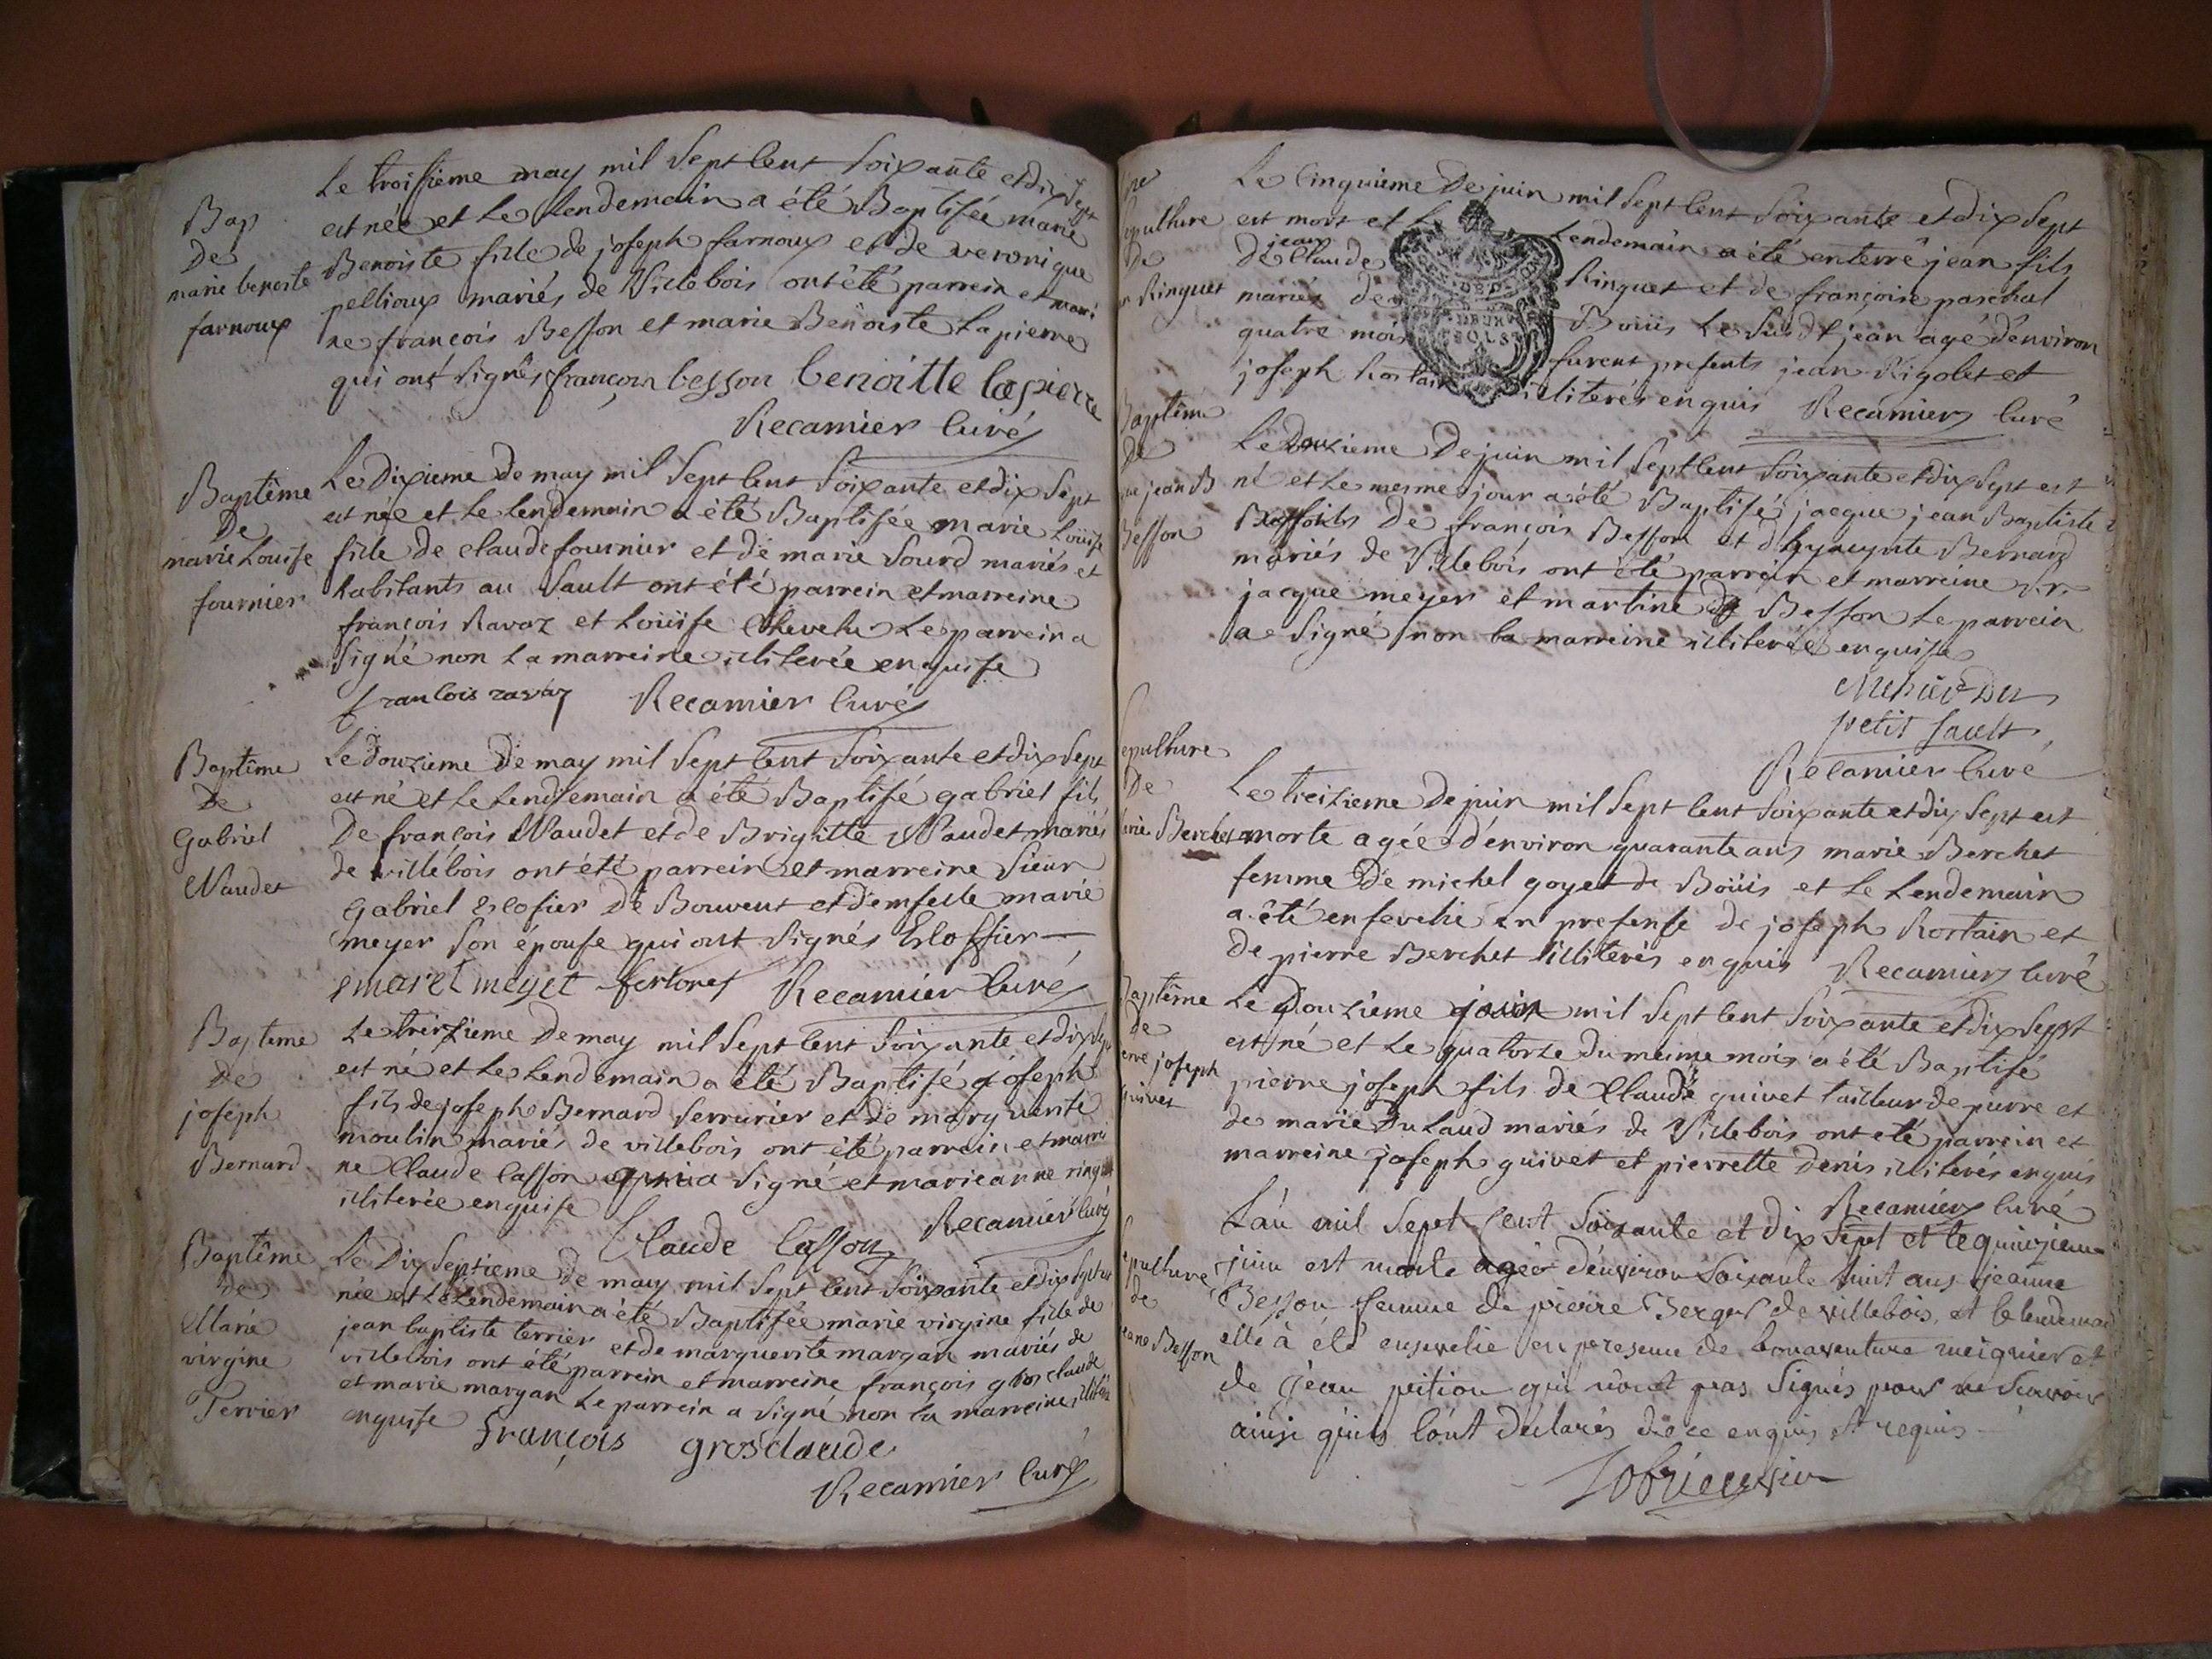 Bap
De
marie benoite
farnoux
Le troisieme may mil Sept Cent Soixante et dix Sept
est née et Le Lendemain a été Baptisée marie
Benoiste fille de joseph farnoux et de veronique
pellioux mariés de Villebois ont été parrein et marei
ne françois Besson et marie Benoiste Lapierre
qui ont signés françois besson benoitte lapierre
Recamier Curé
Baptême
De
marie Louise
fournier
Le Dixieme De may mil Sept Cent Soixante et dix Sept
est née et Le lendemain a été Baptisée marie Louise
fille de claude fournier et de marie Sourd mariés et
habitants au Sault ont été parrein et marreine
françois Ravaz et Louïse Chevelu Le parrein a
Signé non La marreine illiterée enquise
francois ravaz Recamier Curé
Baptême
De
Gabriel
Naudet
Le Douzieme De may mil Sept Cent Soixante et dix Sept
est né et Le Lendemain a été Baptisé gabriel fils
De françois Naudet et de Brigitte Naudet mariés
de villebois ont été parrein et marreine Sieur
Gabriel Escofier De Bouvent et demselle marie
meyer Son épouse qui ont Signés Escoffier
meyet Recamier Curé
Bapteme
De
joseph
Bernard
Le treizieme De may mil Sept Cent Soixante et dix Sept
est né et Le Lendemain a été Baptisé joseph
fils de joseph Bernard Serrurier et de marguerite
moulin mariés de villebois ont été parrein et marrei
ne Claude Casson qui a Signé et marieanne ringuet
illiterée enquise
Claude Casson Recamier Curé
Baptême
de
Marie
virgine
Terrier
Le Dix Septieme De may mil Sept Cent Soixante et dix Sept est
née et Le Lendemain a été Baptisée marie virgine fille de
jean baptiste terrier et de marguerite margan mariés de
villebois ont été parrein et marreine françois gros claude
et marie margan Le parrein a Signé non la marreine illiterée
enquise François grosclaude
Recamier Curé
Sepulture
De
Ringuet
Le Cinquieme De juin mil Sept Cent Soixante et dix Sept
est mort et Le Lendemain a été enterré jean fils
de jean Claude Ringuet et de françoise paschal
mariés de Boüis Le Susdt jean agé d'environ
quatre mois furent presents jean Rigolet et
joseph Rostain illiterés enquis Recamier Curé
Baptême
De
jean B
Besson
Le Douzieme De juin mil Sept Cent Soixante et dix Sept est
né et Le mesme jour a été Baptisé jacque jean Baptiste
De françois Besson et d'hyacynte Bernard
mariés de Villebois ont été parrein et marreine Sr
jacque meyer et martine Besson Le parrein
a Signé non la marreine illiterée enquise
petit Sault
Recamier Curé
Sepulture
De
marie Berchet
Le treizieme De juin mil Sept Cent Soixante et dix Sept est
morte agée d'environ quarante ans marie Berchet
femme De michel goyet de Boüis et Le Lendemain
a été enseveli en presense de joseph Rostain et
de pierre Berchet illiterés enquis Recamier Curé
Baptême
de
pierre joseph
guivet
Le Douzieme juin mil Sept Cent Soixante et dix Sept
est né et Le quatorze du meime mois a été Baptisé
pierre joseph fils de Claude guivet tailleur de pierre et
de marie Dulaud mariés de Villebois ont eté parrein et
marreine joseph guivet et pierrette denis illiterés enquis
Recamier Curé
Sepulture
de
jeanne Besson
L'an mil Sept Cent Soixante et dix Sept et le quinzieme
juin est morte agée d'environ Soixante huit ans jeanne
Besson femme de pierre Berger de villebois, et le lendemain
elle à été ensevelie en presence de bonaventure meignier et
de jean peition qui n'ont pas Signés pour ne Scavoir
ainsi qu'ils l'ont déclarés de ce enquis et requis